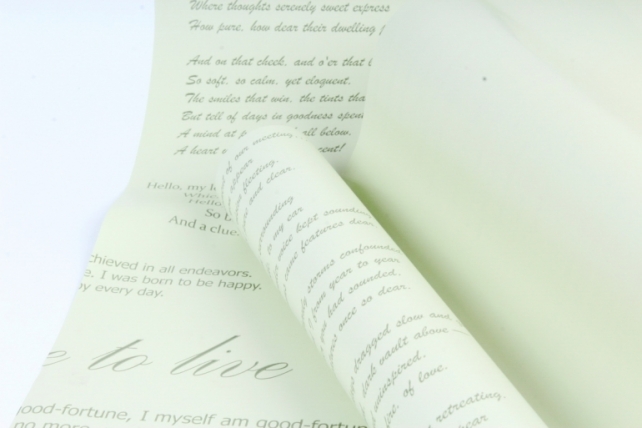 Where thoughts serenely sweet express
How pure, how dear their dwelling
And on that cheek, and o'er that
So soft, so calm, yet eloquent.
The smiles that win, the tints tha
But tell of days in goodness spen
A mind at p all below,
A heart ent!
Hello, my l
Hello
So b
And a clue
chieved in all endeavors.
e. I was born to be happy.
by every day.
e to live
ood-fortune, I myself am good-fortun
no more
of our meeting,
appear
fleeting,
and clear.
surrounding
to my ear
voice kept sounding
came features dear
storms confounded
from year to year
had sounded,
once so dear.
dragged slow and
dark vault above
uninspired,
ire, of love.
retreating,
appear